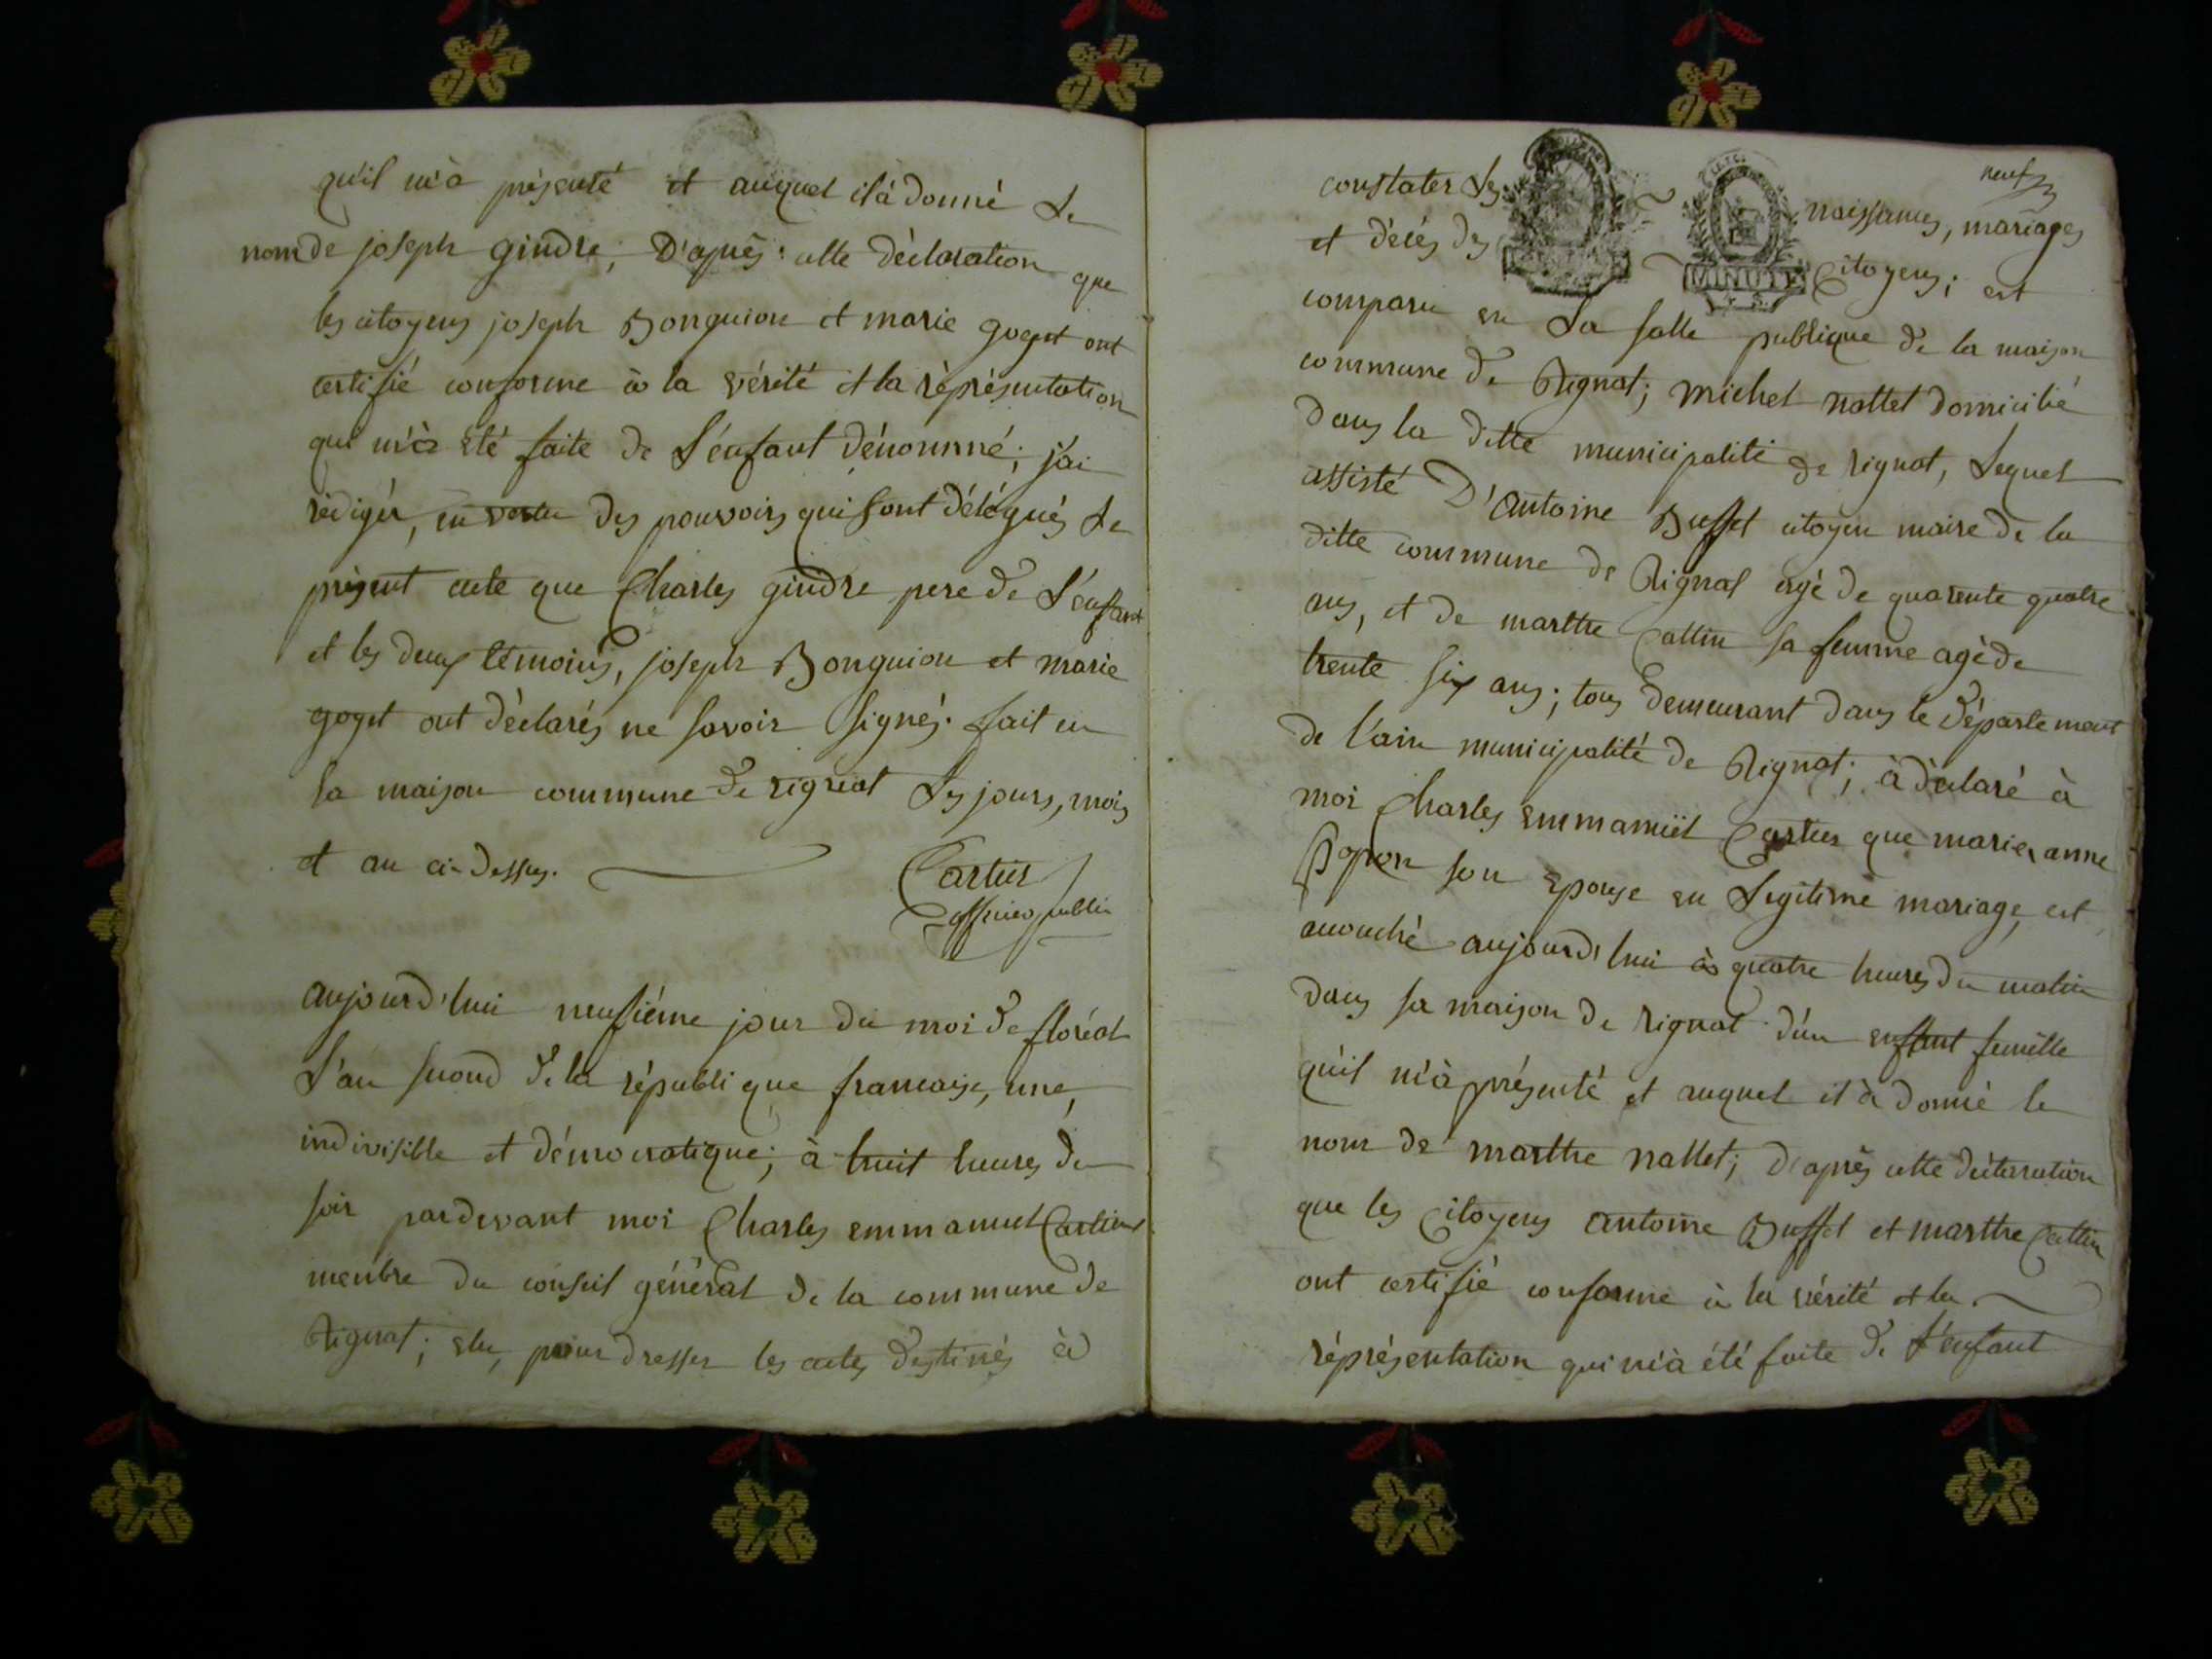 qu'il m'à présenté et auquel il à donné Le
nom de joseph gindre; D'après cette déclaration que
les citoyens joseph Bonguion et marie goyet ont
certifié conforme à la vérité et la représentation
qui m'à été faite de L'enfant dénommé; j'ai
rédigér, en vertu des pouvoirs qui sont délégués Le
présent acte que Charles gindre pere de L'enffant
et les deux témoins, joseph Bonguion et marie
goyet ont déclarés ne savoir signés. fait en
la maison commune de rignat Les jours, mois
et an ci-dessus.
Cartier
officier public
aujourd'hui neufiéme jour du moi de floréal
L'an second de la république francaise, une,
indivisible et démocratique; à huit heures du
soir pardevant moi Charles emmanuel Cartier
membre du conseil général de la commune de
Rignat; elu, pour dresser les actes destinés à
neuf
constater Les naissances, mariages
et décés des Citoyens; est
MINUTE
comparu en La salle publique de la maison
commune de Rignat; michel nallet domicilié
dans la ditte municipalité de rignat, Lequel
assisté D'antoine Buffet citoyen maire de la
ditte commune de Rignat agé de quarente quatre
ans, et de marthe Cattin sa femme agé de
trente six ans; tous demeurant dans le département
de l'ain municipalité de Rignat; à déclaré à
moi Charles emmanuël Cartier que marie anne
son epouse en Legitime mariage, est
accouché aujourd'hui à quatre heures du matin
dans sa maison de rignat d'un enffant femelle
qu'il m'à présenté et auquel il à donné le
nom de marthe nallet; d'après cette déclaration
que les Citoyens antoine Buffet et marthe Cattin
ont certifié conforme à la vérité et la
répresentation qui m'à été faite de L'enfant